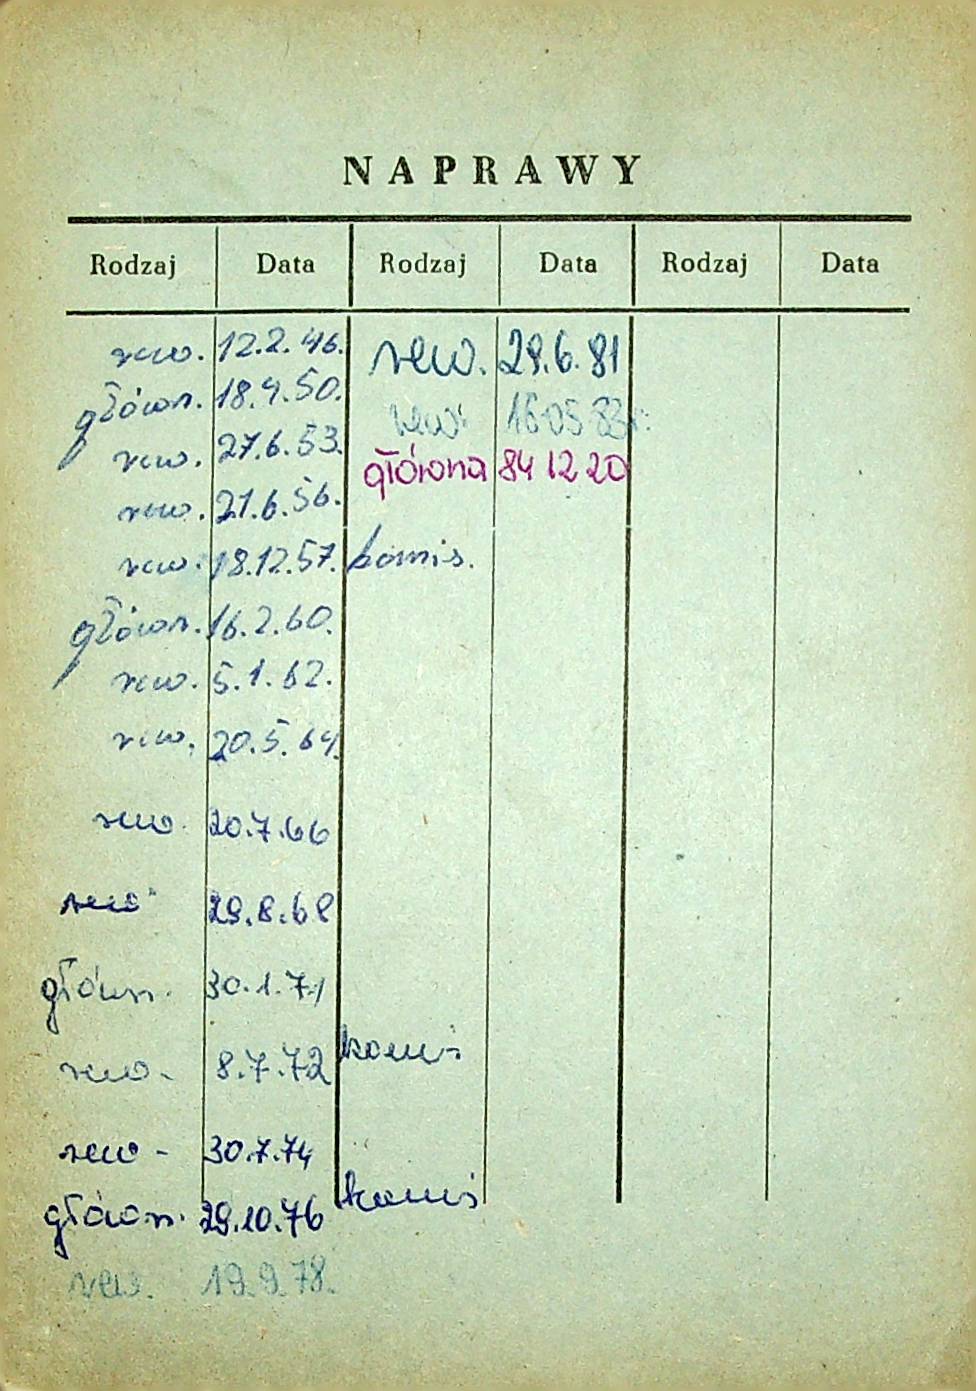 NAPRAWY
Rodzaj Data Rodzaj Data Rodzaj Data
rew. 12.2.46. rew. 29.6.81
główn. 18.9.50. rew. 16 05 83r.
rew. 27.6.53. główna 84 12 20
rew. 21.6.56.
rew. 18.12.57. komis.
główn. 16.2.60.
rew. 5.1.62.
rew. 20.5.64.
rew. 20.7.66
rew. 29.8.68
główn. 30.1.71
rew. 8.7.72 komis
rew - 30.7.74
główn. 29.10.76 komis
rew. 19.9.78.